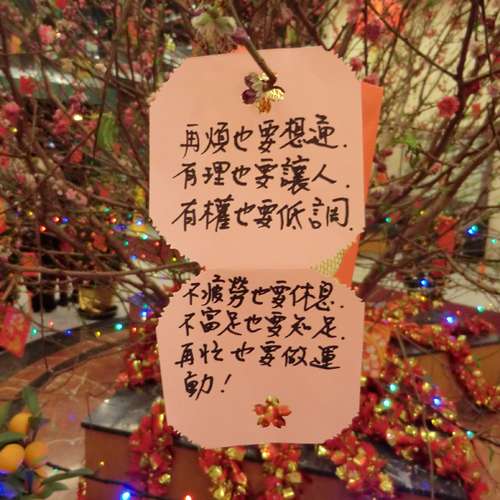 再煩也要想通.
有理也要讓人.
有權也要低調.
不疲勞也要休息.
不富足也要知足.
再忙也要做運
動！